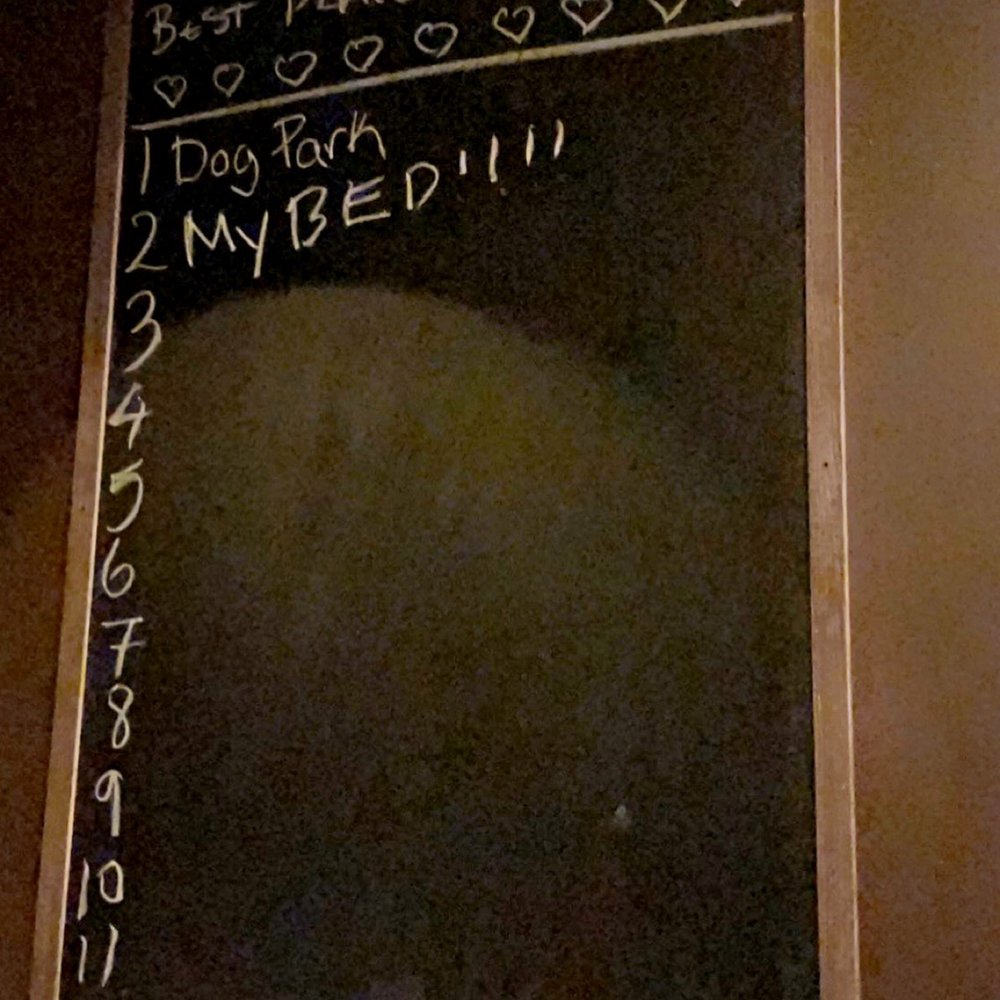 BEST
♡ ♡ ♡ ♡ ♡ ♡ ♡ ♡ ♡
1 Dog Park
2 My BED !!!!
3
4
5
6
7
8
9
10
11